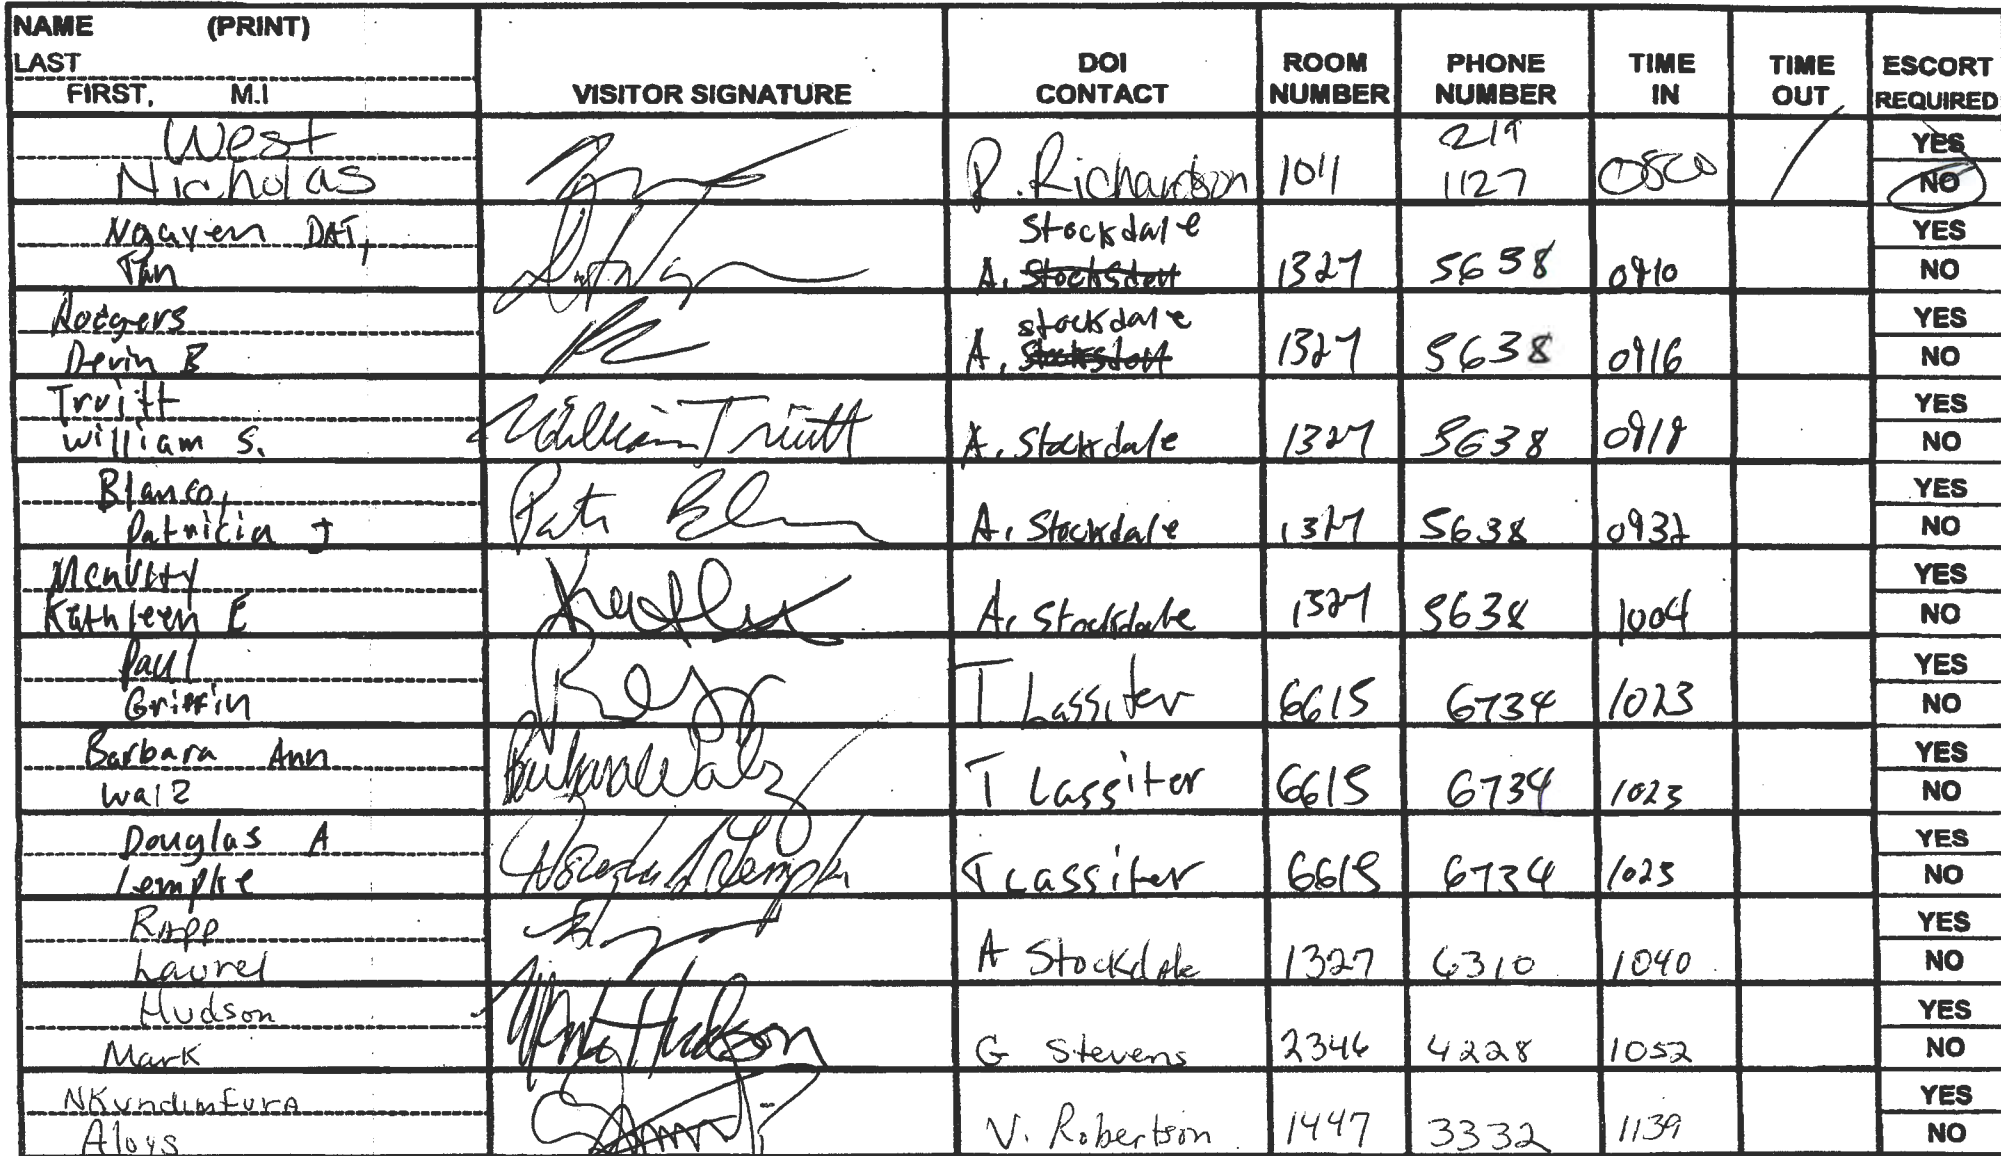 NAME (PRINT)
LAST
FIRST, M.I
VISITOR SIGNATURE
DOI CONTACT
ROOM NUMBER
PHONE NUMBER
TIME IN
TIME OUT
ESCORT REQUIRED
West
Nicholas
P. Richardson 1011 219 1127 0800 / YES NO
Ngayen DAT,
Tan
Stockdale
A. 1327 5638 0910 YES NO
Rodgers
Devin B
stockdale
A. 1327 5638 0916 YES NO
Truitt
William S.
William Truitt
A. Stockdale 1327 5638 0919 YES NO
Blanco,
Patricia J
A. Stockdale 1327 5638 0932 YES NO
Kathleen E
A. Stockdale 1327 5638 1004 YES NO
Paul
Griffin
T Lassiter 6615 6734 1023 YES NO
Barbara Ann
Walz
Barbara Walz
T Lassiter 6615 6734 1023 YES NO
Douglas A
Lempke
T Lassiter 6615 6734 1023 YES NO
Rapp
Laurel
A Stockdale 1327 6310 1040 YES NO
Hudson
Mark
Mark Hudson
G Stevens 2346 4228 1052 YES NO
Aloys
V. Robertson 1447 3332 1139 YES NO